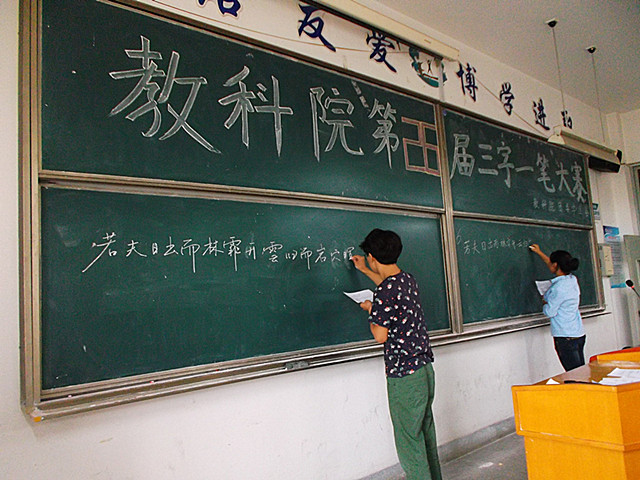 友爱 博学进取
教科院第五届三字一笔大赛
若夫日出而林霏开雲归而岩穴暝
若夫日出而林霏开